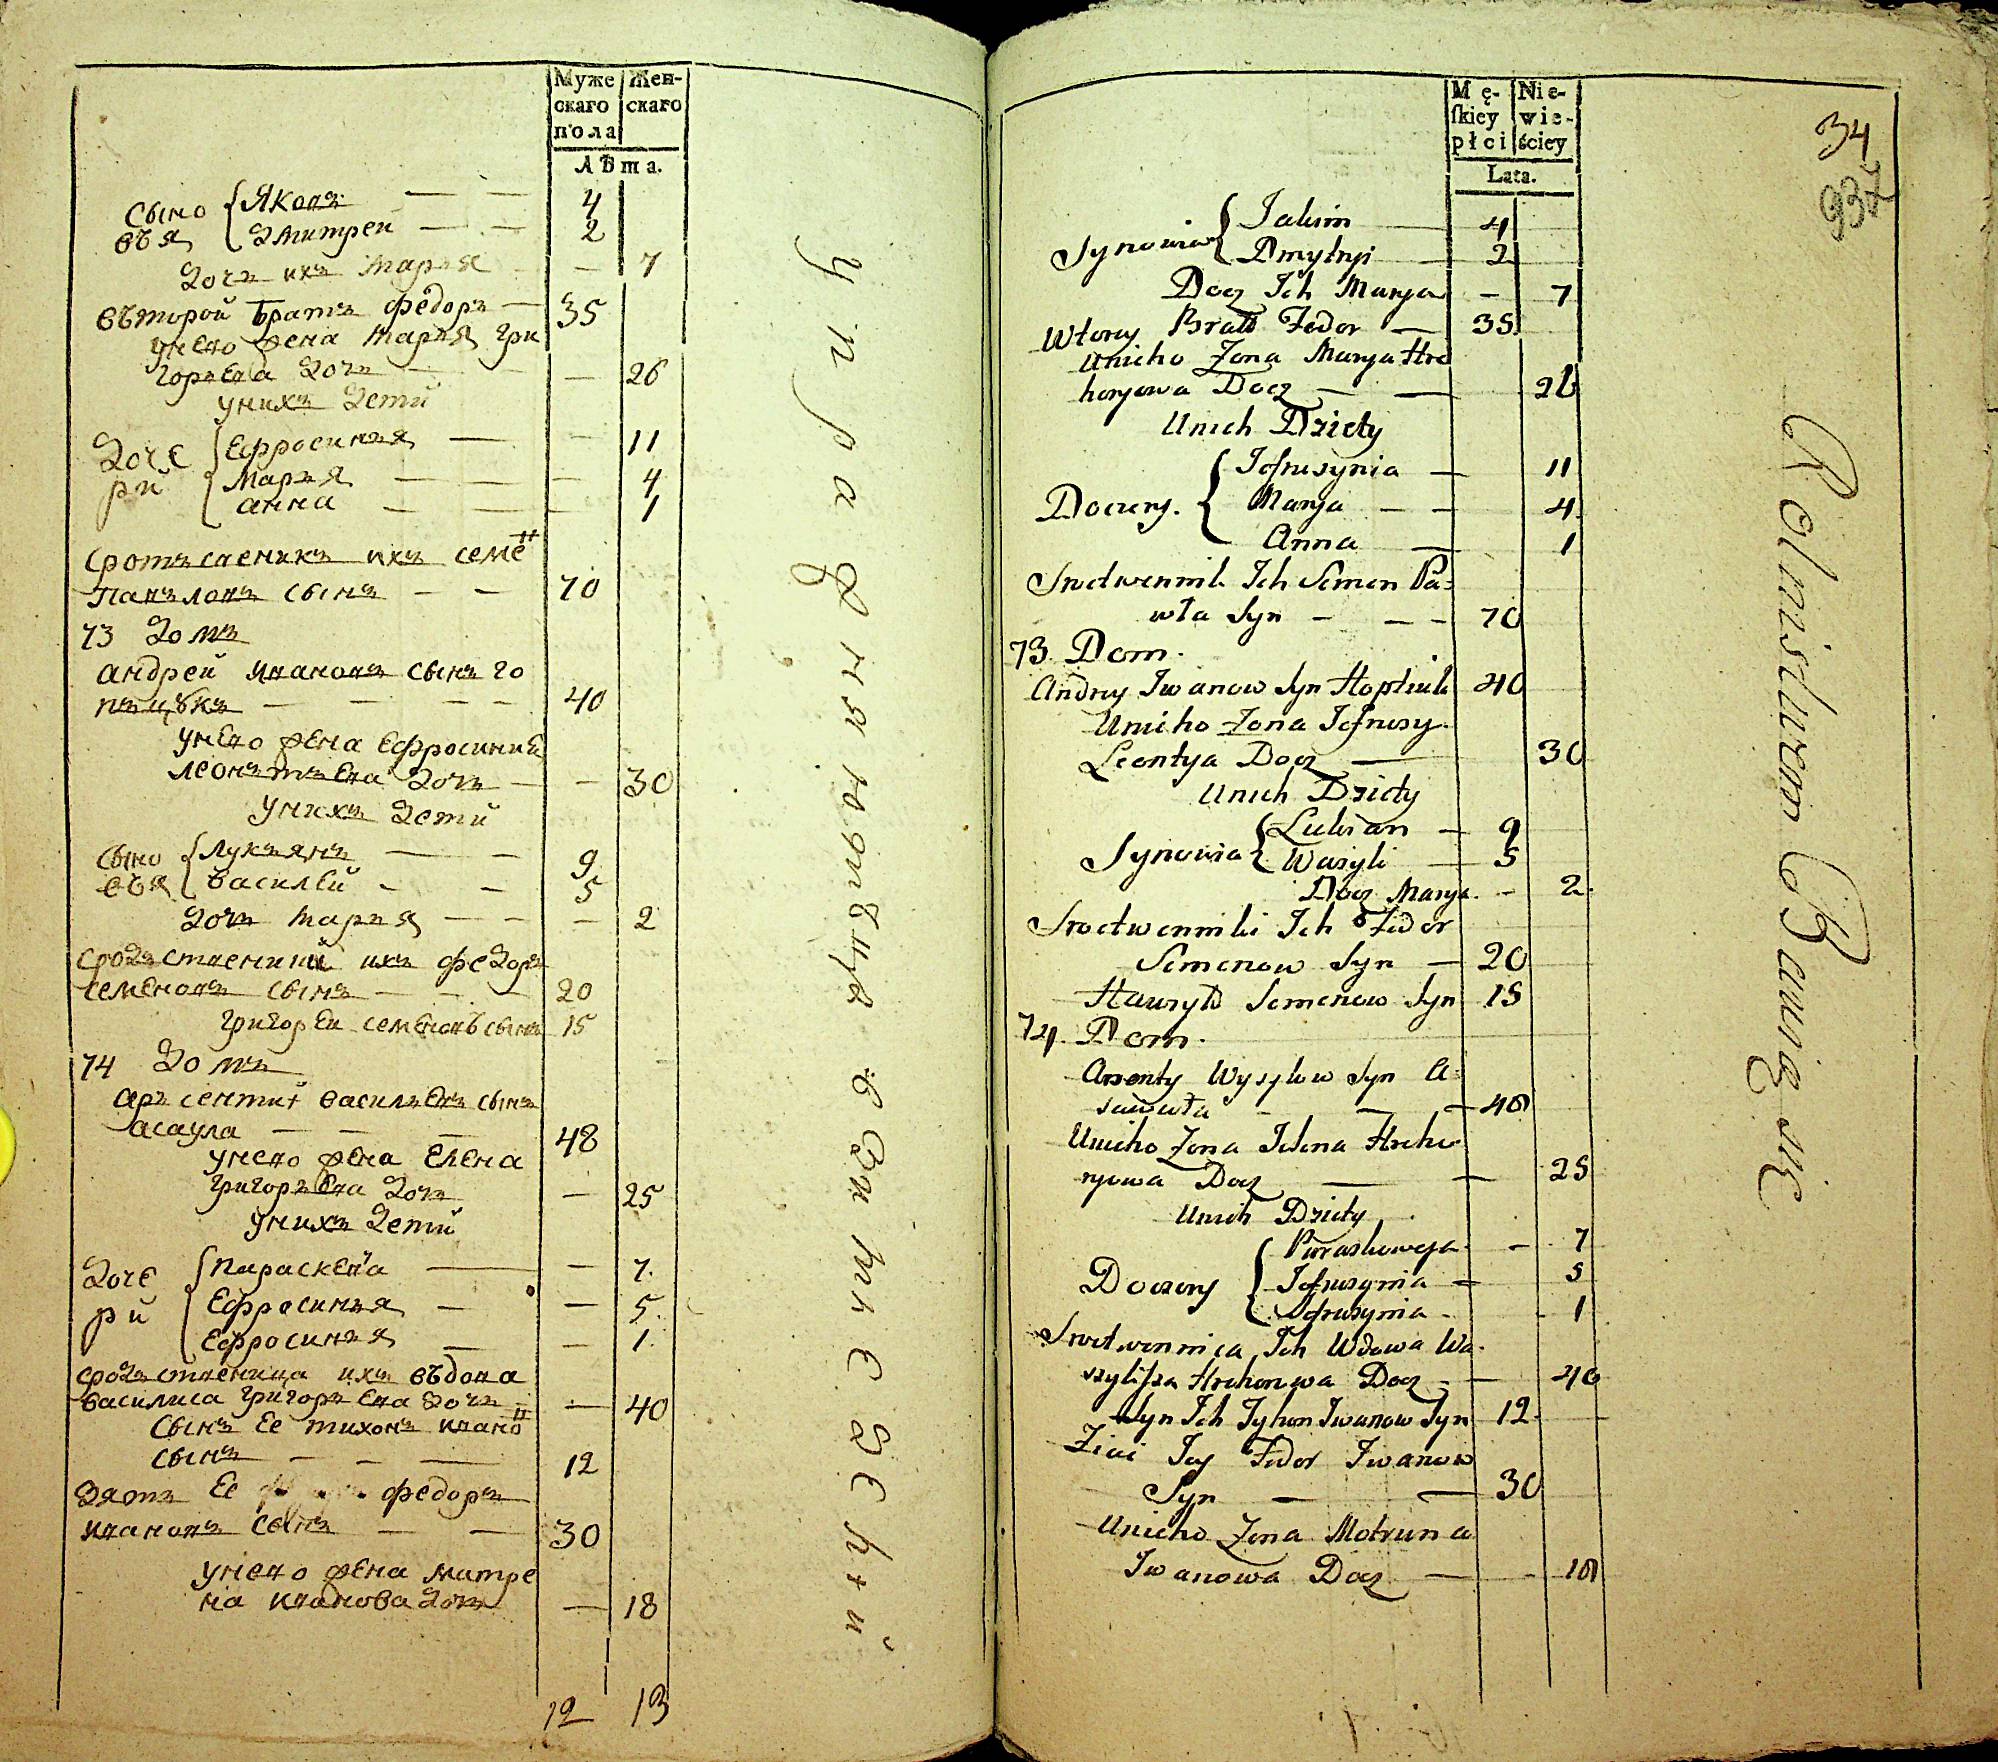 Муже Жен-
скаго скаго
пола
лѣта.
сыно Яковъ — — 4
въя Дмитрей — — 2
Дочь ихъ Марья — 7
въторой Братъ Федоръ — 35
унево жена Марья гри
горьева Дочь — 26
унихъ Дети
Доче Ефросинья — — 11
ри Марья — — — 4
анна — — — 1
сротъсвеникъ ихъ семе н
Павъловъ сынъ — — 70
73 Домъ
андрей ивановъ сынъ го
пъцѣкъ — — — — 40
унево жена Ефросиния
леонътьева Дочь — — 30
Унихъ Дети
сыно Лукъянъ — — 9
въя Василей — — 5
Дочь Марья — — — 2
Федоръ
семеновъ сынъ — — — 20
григорей семеновъ сынъ 15
74 Домъ
арьсентий васильевъ сынъ
асаула — — — 48
унево жена Елена
григорьева Дочь — 25
унихъ Дети
Доче Параскева — — 7.
ри Ефросинья — — 5.
Ефросинья — — 1.
сродственица ихъ въдова
василиса григорьева Дочь — 40
Сынъ Ее тихонъ ивано в
сынъ — — — 12
Зять Ее Федоръ
ивановъ сынъ — — 30
унево жена матре
на иванова Дочь — 18
12 13
упражняютъца
в земледелии
Mę- Nie-
ſkiey wie-
płci ściey
Lata.
34
937
Synowie Jakim — 4
Dmytryi — 2
Docz Ich Marya — 7
Wtory Bratt Fedor — 35
Unieho Zona Marya Hre
horyowa Docz — — 26
Unich Dziety
Jefrusynia — 11
Doczery. Marya — — 4
Anna — 1
Srodtwennik Ich Semen Pa=
wła Syn — — — 70
73. Dom.
Andrey Iwanow Syn Hoptiuk 40
Unieho Zona Jefrusy.
Leontya Docz — 30
Unich Dziety
Synowia Lukian — 9
Wasyli — 5
Docz Marya. — 2.
Srodtwenniki Ich Fedor
Semenow Syn — 20
Hawryło Semenow Syn 15
74. Dom.
Arsenty Wasylow Syn A=
sawuła — — — 48
Unieho Zona Jelena Hreho
ryowa Docz — — 25
Unich Dziety
Paraskoweja — 7
Doczery Jefrusynia — 5
Jefrusynia — 1
Srodtwennica Ich Wdowa Wa.
Docz — — 40
Syn Ich Tyhon Iwanow Syn 12.
Ziać Jey Fedor Iwanow
Syn — — 30
Unieho Zona Motruna
Iwanowa Docz — — 18
Rolnictwem Bawią się